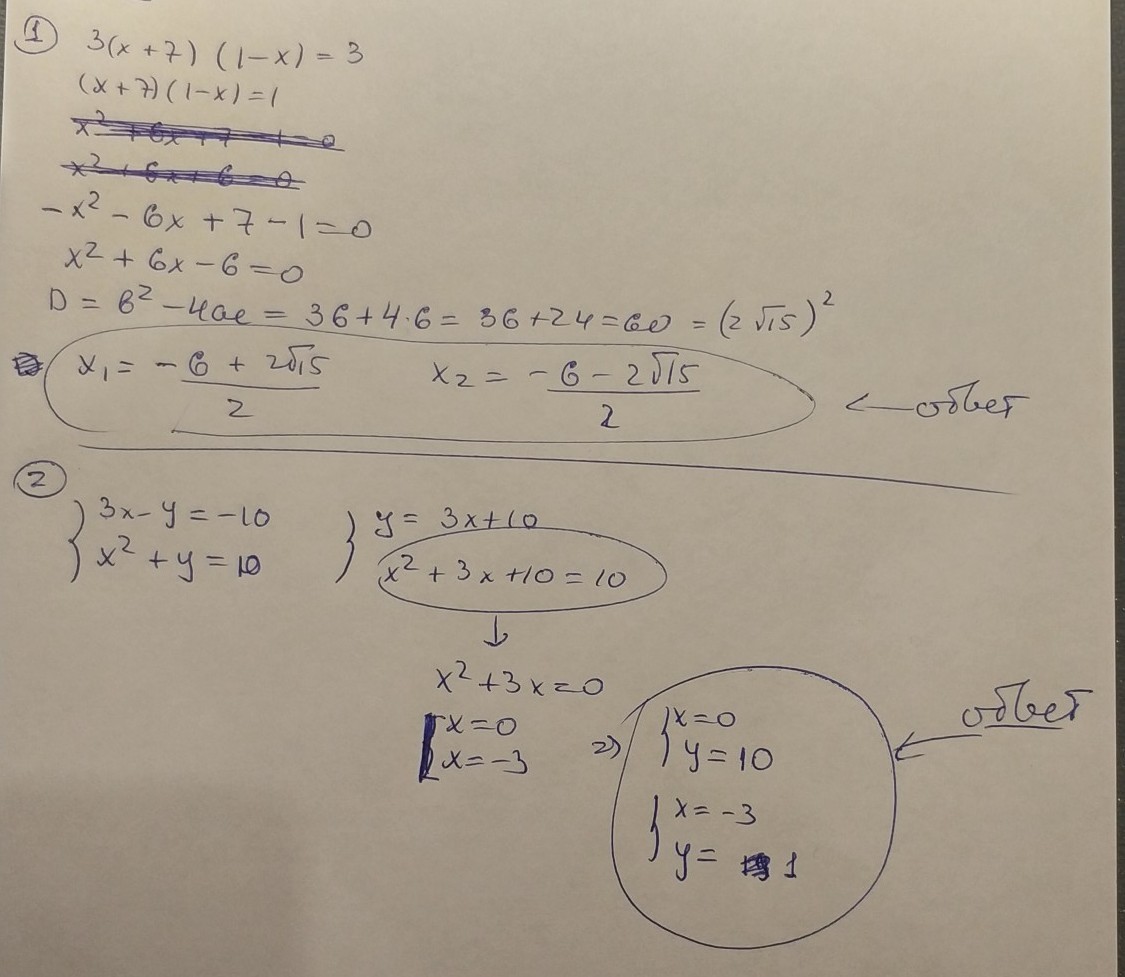 ① 3(x+7)(1-x)=3
(x+7)(1-x)=1
x² + 6x + 7 - 1 = 0
x² + 6x + 6 = 0
-x² - 6x + 7 - 1 = 0
x² + 6x - 6 = 0
D = b² - 4ac = 36+4·6 = 36+24=60 = (2√15)²
x₁ = (-6 + 2√15)/2 x₂ = (-6 - 2√15)/2 ← ответ
②
{ 3x-y=-10 { y = 3x+10
{ x²+y=10 { x²+3x+10=10
↓
x²+3x=0
[ x=0
[ x=-3
2) { x=0
{ y=10
{ x=-3
{ y= 1
← ответ